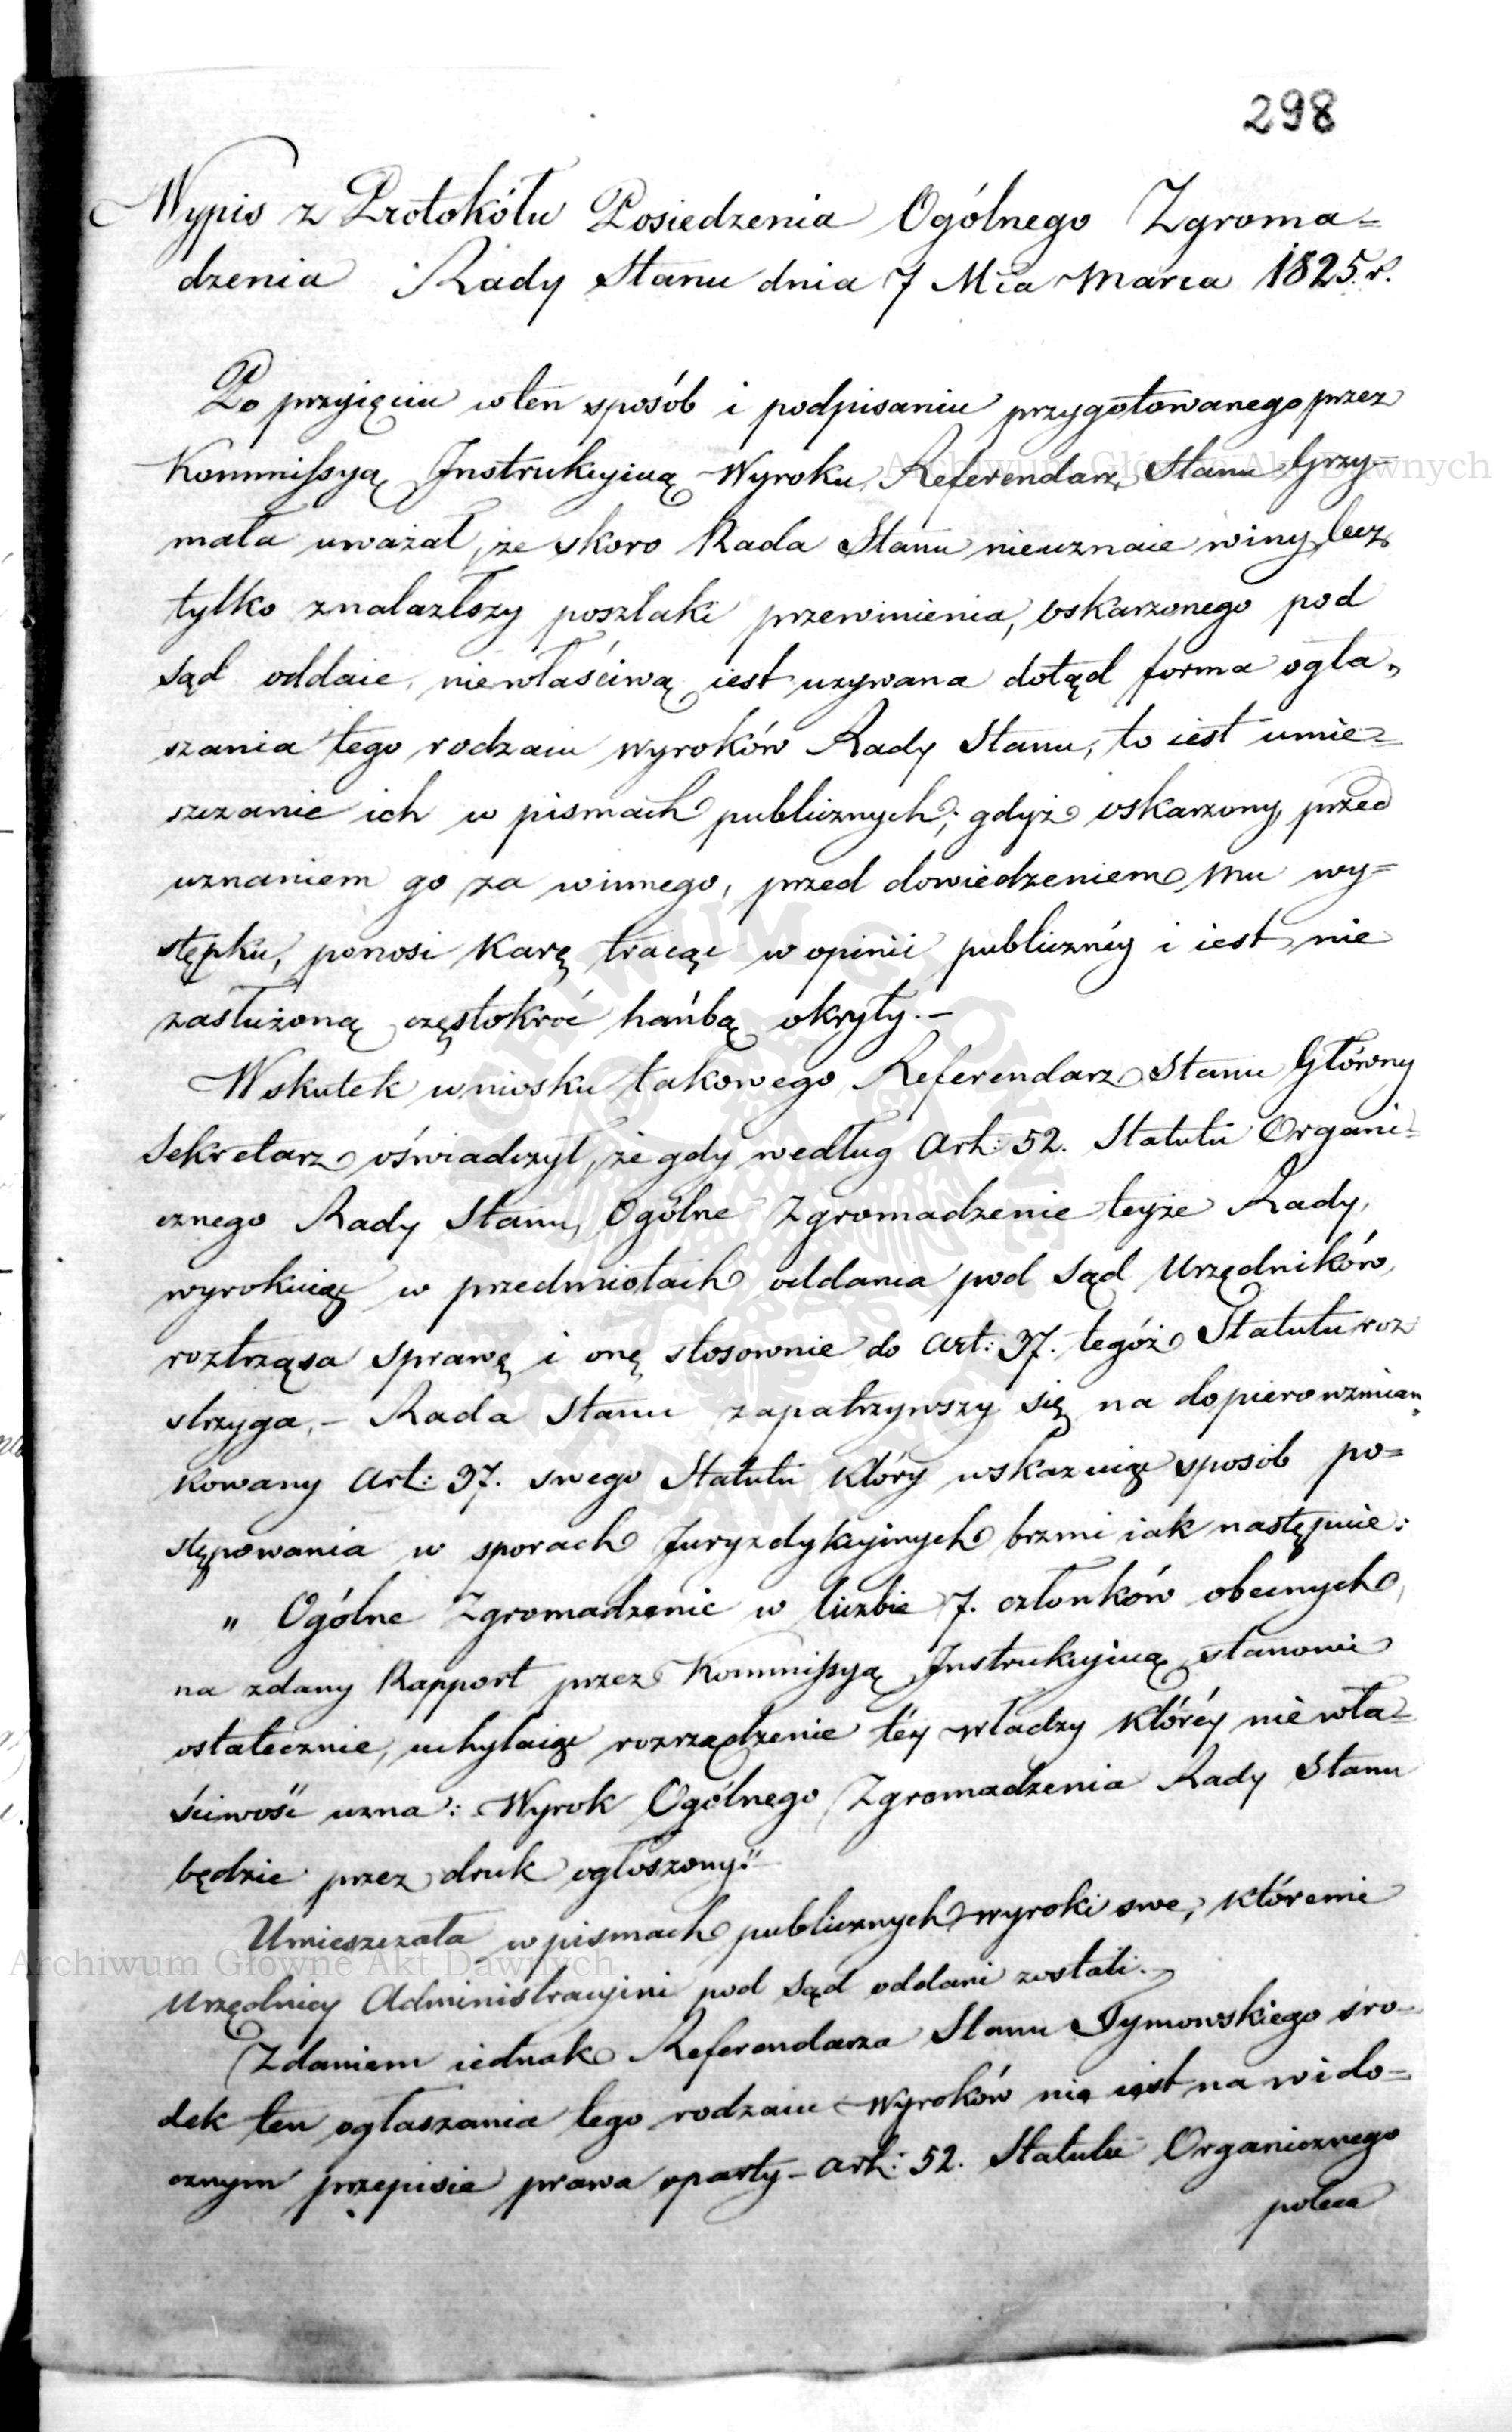 298
Wypis z Protokółu Posiedzenia Ogólnego Zgroma=
dzenia Rady Stanu dnia 7 Mca Marca 1825.r.
Po przyięciu wten sposób i podpisaniu przygotowanego przez
Kommissyą Instrukcyiną Wyroku, Referendarz Stanu Grzy=
mała uważał, że skoro Rada Stanu nieuznaie winy, lecz
tylko znalazłszy poszlaki przewinienia, oskarzonego pod
Sąd oddaie, niewłaściwą iest uzywana dotąd forma ogła„
szania tego rodzaiu wyroków Rady Stanu, to iest umie=
szczanie ich w pismach publicznych; gdyż oskarzony, przed
uznaniem go za winnego, przed dowiedzeniem mu wy=
stępku, ponosi karę tracąc w opinii publicznéy i iest nie
zasłużoną częstokroć hańbą okryty.–
Wskutek wniosku takowego Referendarz Stanu Główny
Sekretarz oświadczył, że gdy według Art: 52. Statutu Organi-
cznego Rady Stanu, Ogólne Zgromadzenie teyże Rady,
wyrokuiąc w przedmiotach oddania pod Sąd Urzędników,
roztrząsa Sprawę i onę stosownie do Art: 37. tegóż Statutu roz
strzyga,– Rada Stanu zapatrzywszy się na dopiero wzmian„
kowany Art: 37. swego Statutu który wskazuiąc sposób po=
stępowania w sporach Juryzdykcyinych brzmi iak następuie:
„ Ogólne Zgromadzenie w liczbie 7. członków obecnych,
na zdany Rapport przez Kommissyą Instrukcyiną stanowi
ostatecznie, uchylaiąc rozrządzenie téy władzy któréy niewła=
ściwość uzna: Wyrok Ogólnego Zgromadzenia Rady Stanu
będzie przez druk ogłoszony."–
Umieszczała w pismach publicznych wyroki swe, któremi
Urzędnicy Administracyini pod Sąd oddani zostali.–
Zdaniem iednak Referendarza Stanu Tymowskiego śro-
dek ten ogłaszania tego rodzaiu Wyroków nie iest na wido=
cznym przepisie prawa oparty– Art: 52. Statutu Organicznego
poleca
Archiwum Główne Akt Dawnych
Archiwum Główne Akt Dawnych
ARCHIWUM GŁÓWNE AKT DAWNYCH